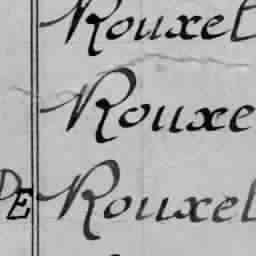 Rouxel
Rouxe
DE Rouxel